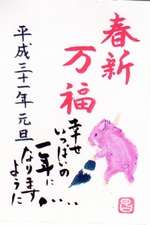 春新
万福
幸せ
いっぱいの
一年に
なります
ように……
平成三十一年 元旦